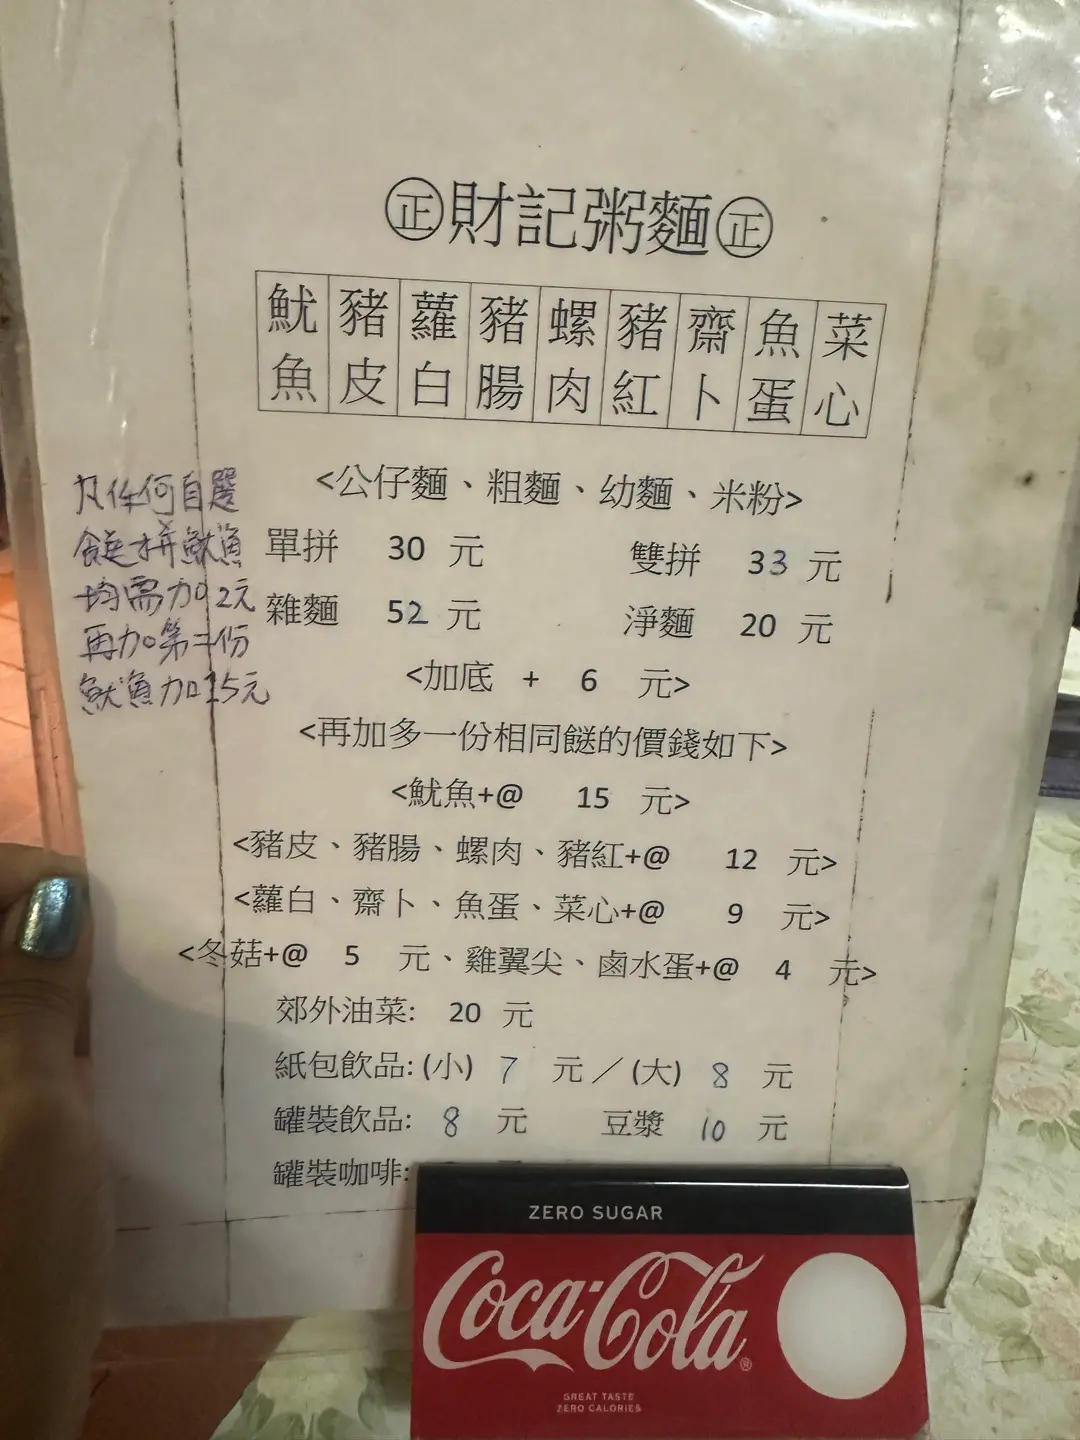 ㊣財記粥麵㊣
魷魚 豬皮 蘿白 豬腸 螺肉 豬紅 齋卜 魚蛋 菜心
<公仔麵、粗麵、幼麵、米粉>
單拼 30 元 雙拼 33 元
雜麵 52 元 淨麵 20 元
<加底 + 6 元>
<再加多一份相同餸的價錢如下>
<魷魚+@ 15 元>
<豬皮、豬腸、螺肉、豬紅+@ 12 元>
<蘿白、齋卜、魚蛋、菜心+@ 9 元>
<冬菇+@ 5 元、雞翼尖、鹵水蛋+@ 4 元>
郊外油菜: 20 元
紙包飲品: (小) 7 元／(大) 8 元
罐裝飲品: 8 元 豆漿 10 元
罐裝咖啡:
凡任何自選
餸拼魷魚
均需加2元
再加第二份
魷魚加15元
ZERO SUGAR
Coca-Cola
GREAT TASTE
ZERO CALORIES